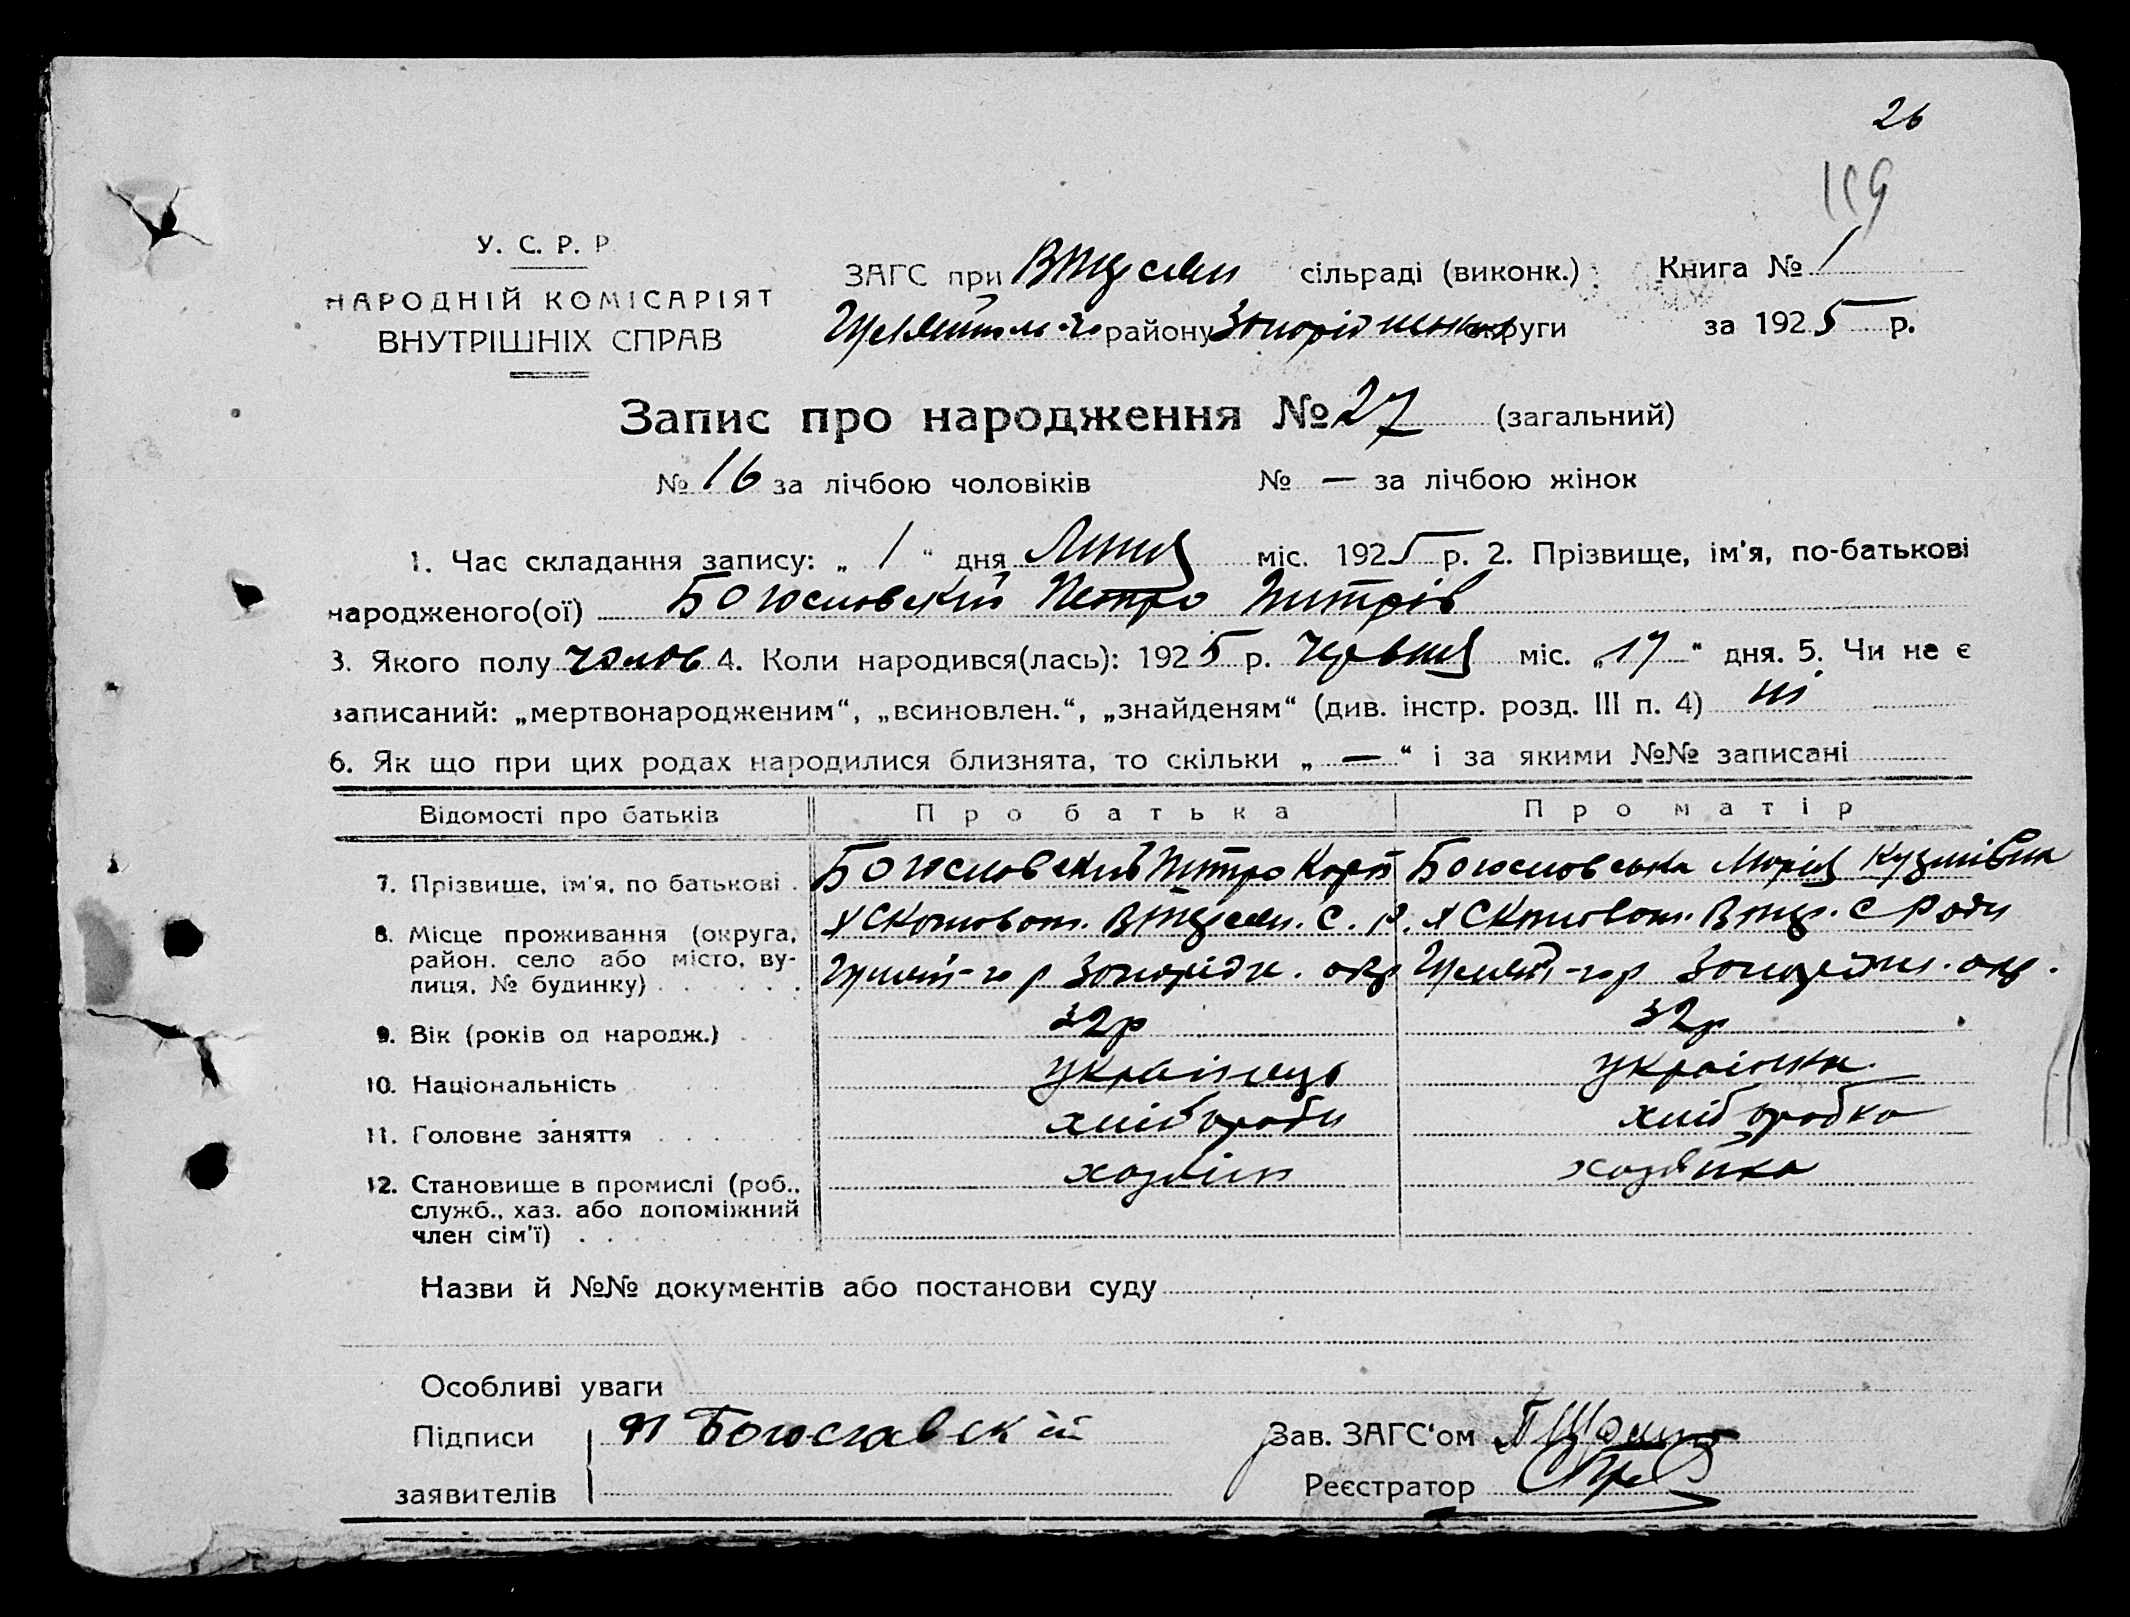 26
119
У. С. Р. Р
НАРОДНІЙ КОМІСАРІЯТ
ВНУТРІШНІХ СПРАВ
ЗАГС при сільраді (виконк.)
Книга № 1
району округи
за 1925 р.
Запис про народження № 27 (загальний)
№ 16 за лічбою чоловіків
№ — за лічбою жінок
1. Час складання запису: „ 1 “ дня Липця міс. 1925 р. 2. Прізвище, ім'я, по-батькові
народженого(ої) Богословский Петро Питрів
3. Якого полу чолов 4. Коли народився(лась): 1925 р. Червця міс. „17“ дня. 5. Чи не є
записаний: „мертвонародженим“, „всиновлен.“, „знайденям“ (див. інстр. розд. III п. 4) ні
6. Як що при цих родах народилися близнята, то скільки „ — “ і за якими №№ записані
Відомості про батьків
Про батька
Про матір
7. Прізвище, ім'я, по батькові
Богословский Питро
Богословська Марія Кузмівна
8. Місце проживання (округа,
район, село або місто, ву-
лиця, № будинку)
9. Вік (років од народж.)
32р
32р
10. Національність
українець
українка
11. Головне заняття
хліборобка
12. Становище в промислі (роб.,
служб., хаз. або допоміжний
член сім'ї)
хазяїн
хазяйка
Назви й №№ документів або постанови суду
Особливі уваги
Підписи
заявителів
П Богославскій
Зав. ЗАГС'ом
Реєстратор